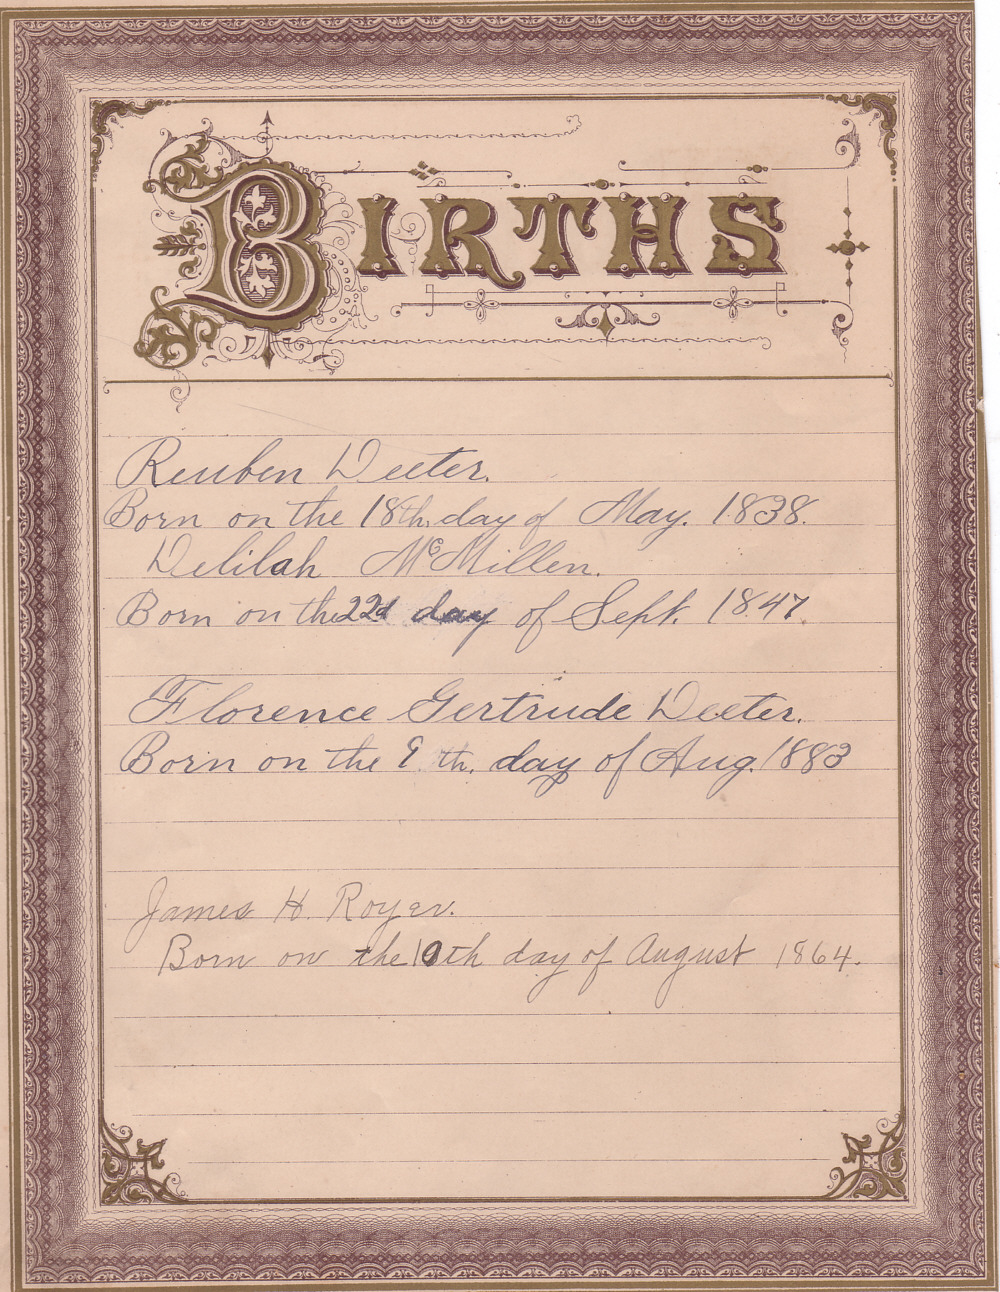 BIRTHS
Reuben Deeter.
Born on the 18th. day of May. 1838.
Delilah McMillen.
Born on the 22d day of Sept. 1847
Florence Gertrude Deeter.
Born on the 9 th. day of Aug. 1883
James H. Royer.
Born on the 10th day of August 1864.